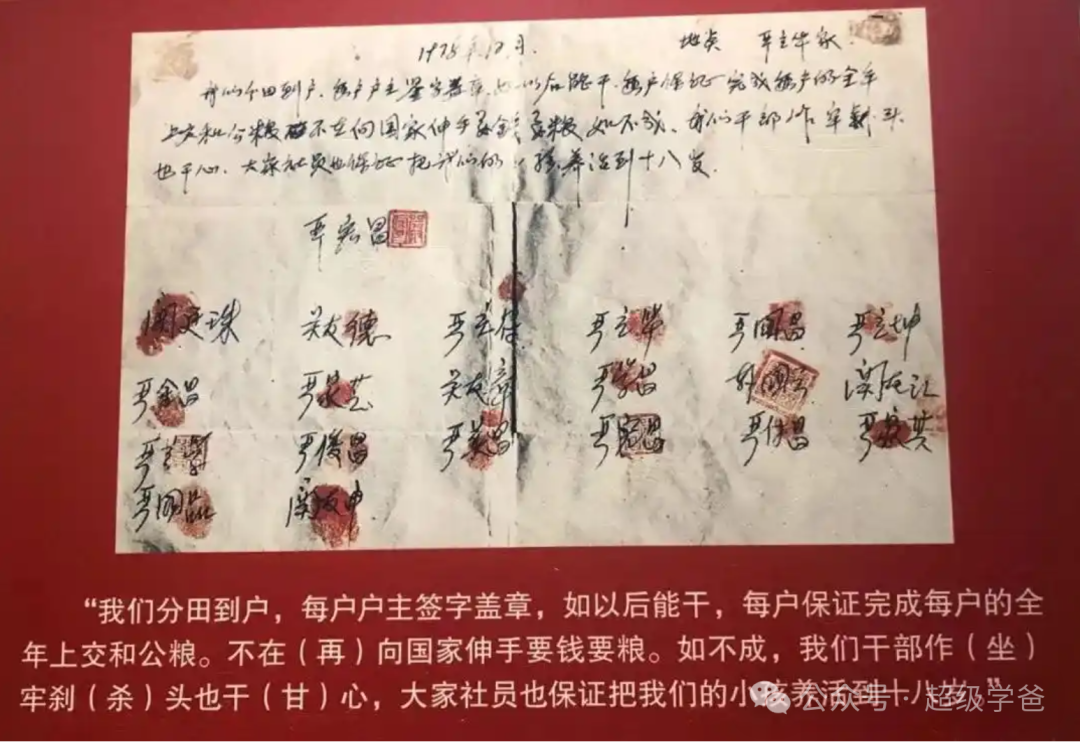 1978年12月. 地点 严立华家
我们分田到户,每户户主签字盖章,如以后能干,每户保证完成每户的全年
上交和公粮 不在向国家伸手要钱要粮,如不成,我们干部作牢刹头
也干心,大家社员也保证把我们的小孩养活到十八岁.
严宏昌
关廷珠 关友德 严立符 严立华 严国昌 严立坤
严金昌 严家芝 关友章 严学昌 韩国云 关友江
严立学 严俊昌 严美昌 严宏昌 严付昌 严家其
严国品 关友申
“我们分田到户，每户户主签字盖章，如以后能干，每户保证完成每户的全
年上交和公粮。不在（再）向国家伸手要钱要粮。如不成，我们干部作（坐）
牢刹（杀）头也干（甘）心，大家社员也保证把我们的小孩养活到十八岁。”
公众号·超级学爸